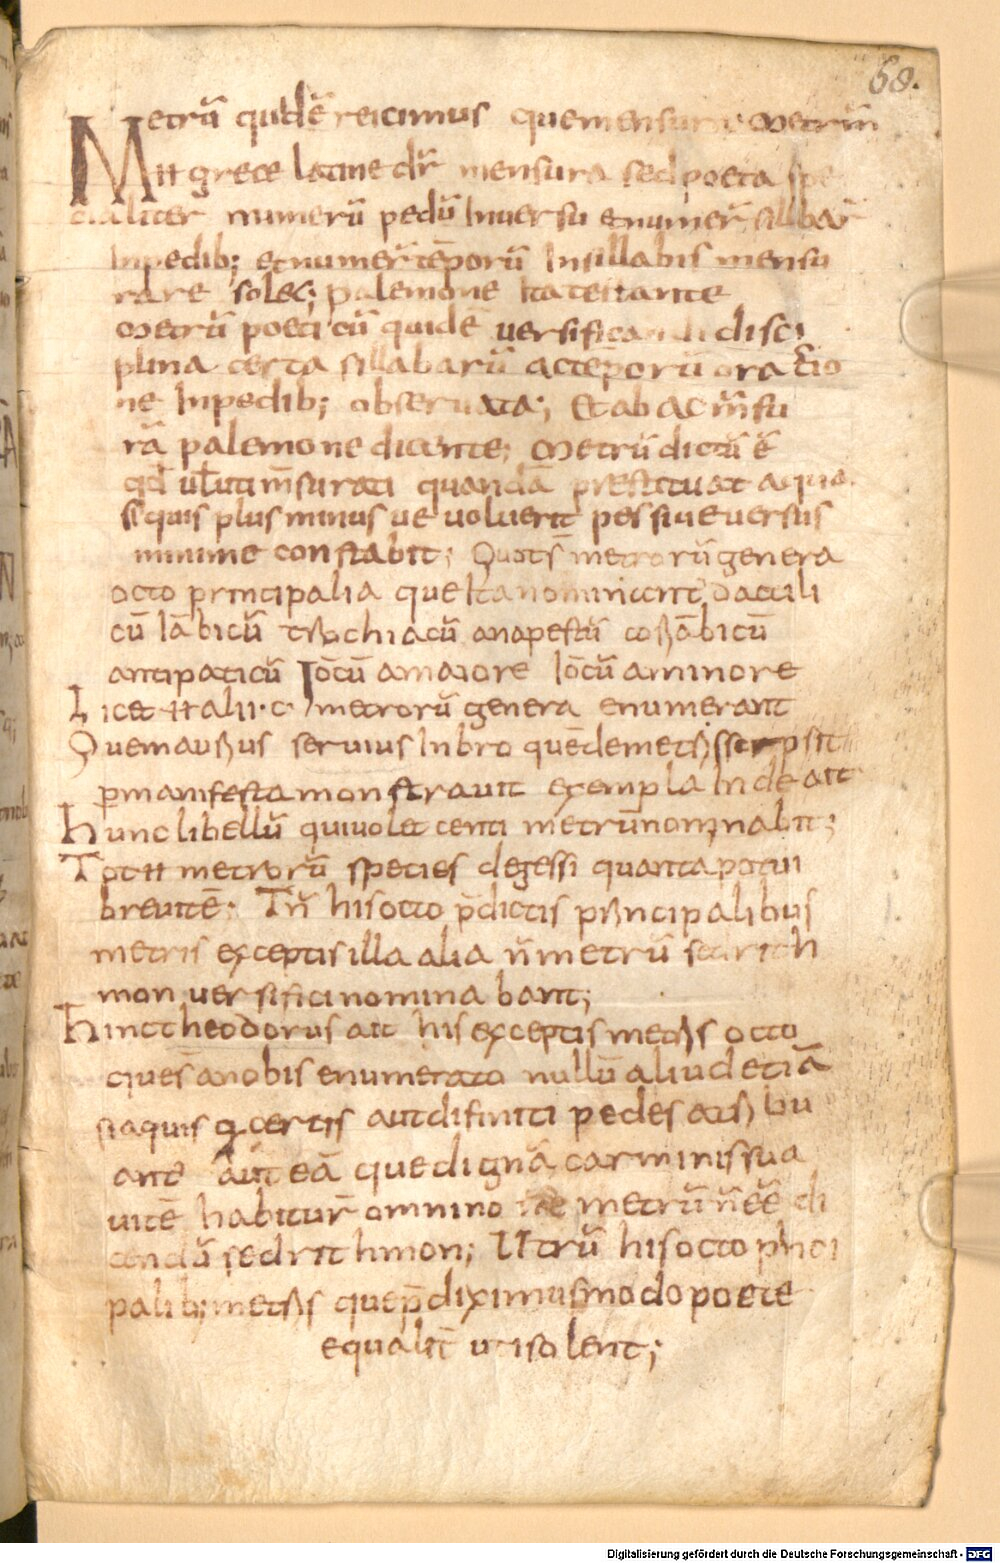 68.
Metrū quidē reicimus quemensura metrum
II grece latine dr̄ mensura sed poeta spe
cialiter numerū pedū Inuersu et numer̄ sillbar̄
Inpedib; et numer̄ tēporū Insillabis mensu
rare solet; palemone ita testante
Metrū poeticū quidē uersificandi disci
plina certa sillabarū ac tēporū oratio
ne Inpedib; obseruata; Et ab ac m̄su
rā palemone dicente; Metrū dictū ē
qd̄ uelut m̄surati quandā prestituat a qua
si quis plus minus ue voluerit pes siue uersus
minime constabit; Quot s̄ metrorū genera
octo principalia que Ita nominant dactili
cū Iābicū trochiacū anapestū corābicū
antipaticū Iōcū amaiore Iōcū aminore
Licet II alii c metrorū genera enumerant
Quem aurus seruius Inbro quē demetris scripsit
p manifesta monstrauit exempla Inde ait
hunc libellū qui volet centi metrū nominabit;
Tot II metrorū species degessi quanta potui
breuitē; Tn̄ his octo p̄dictis principalibus
metris exceptis illa alia n̄ metrū sed rith
mon uersifici nominabant;
hinc theodorus ait his exceptis metris octo
que s̄ anobis enumerato nullū aliud etiā
siaquis certis aut difiniti pedes
ante aut eā que dignā carminis sua
uitē habitur̄ omnino metrū n̄ eē di
cendū sed rithmon; Utrū his octo prīci
palib; metris que p̄diximus modo poete
equalit̄ uti solent;
Digitalisierung gefördert durch die Deutsche Forschungsgemeinschaft - DFG